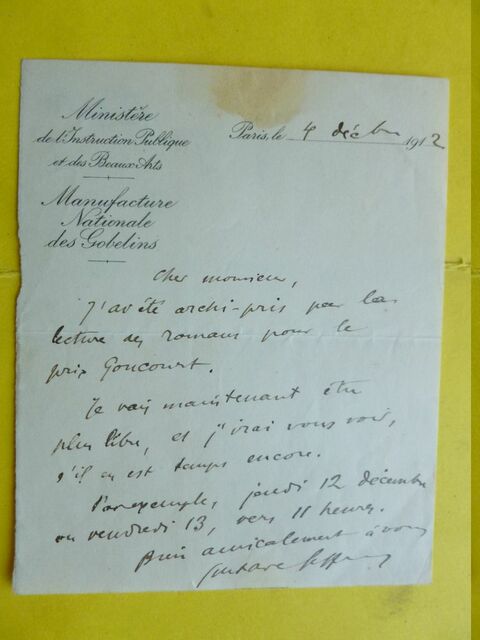 Ministère
de l'Instruction Publique
et des Beaux Arts
Manufacture
Nationale
des Gobelins
Paris, le 4 décbre 1912
Cher monsieur,
J'ai été archi-pris par la
lecture des romans pour le
prix Goncourt.
Je vais maintenant être
plus libre, et j'irai vous voir,
s'il en est temps encore.
Par exemple, jeudi 12 décembre
ou vendredi 13, vers 11 heures.
Bien amicalement à vous
Gustave Geffroy